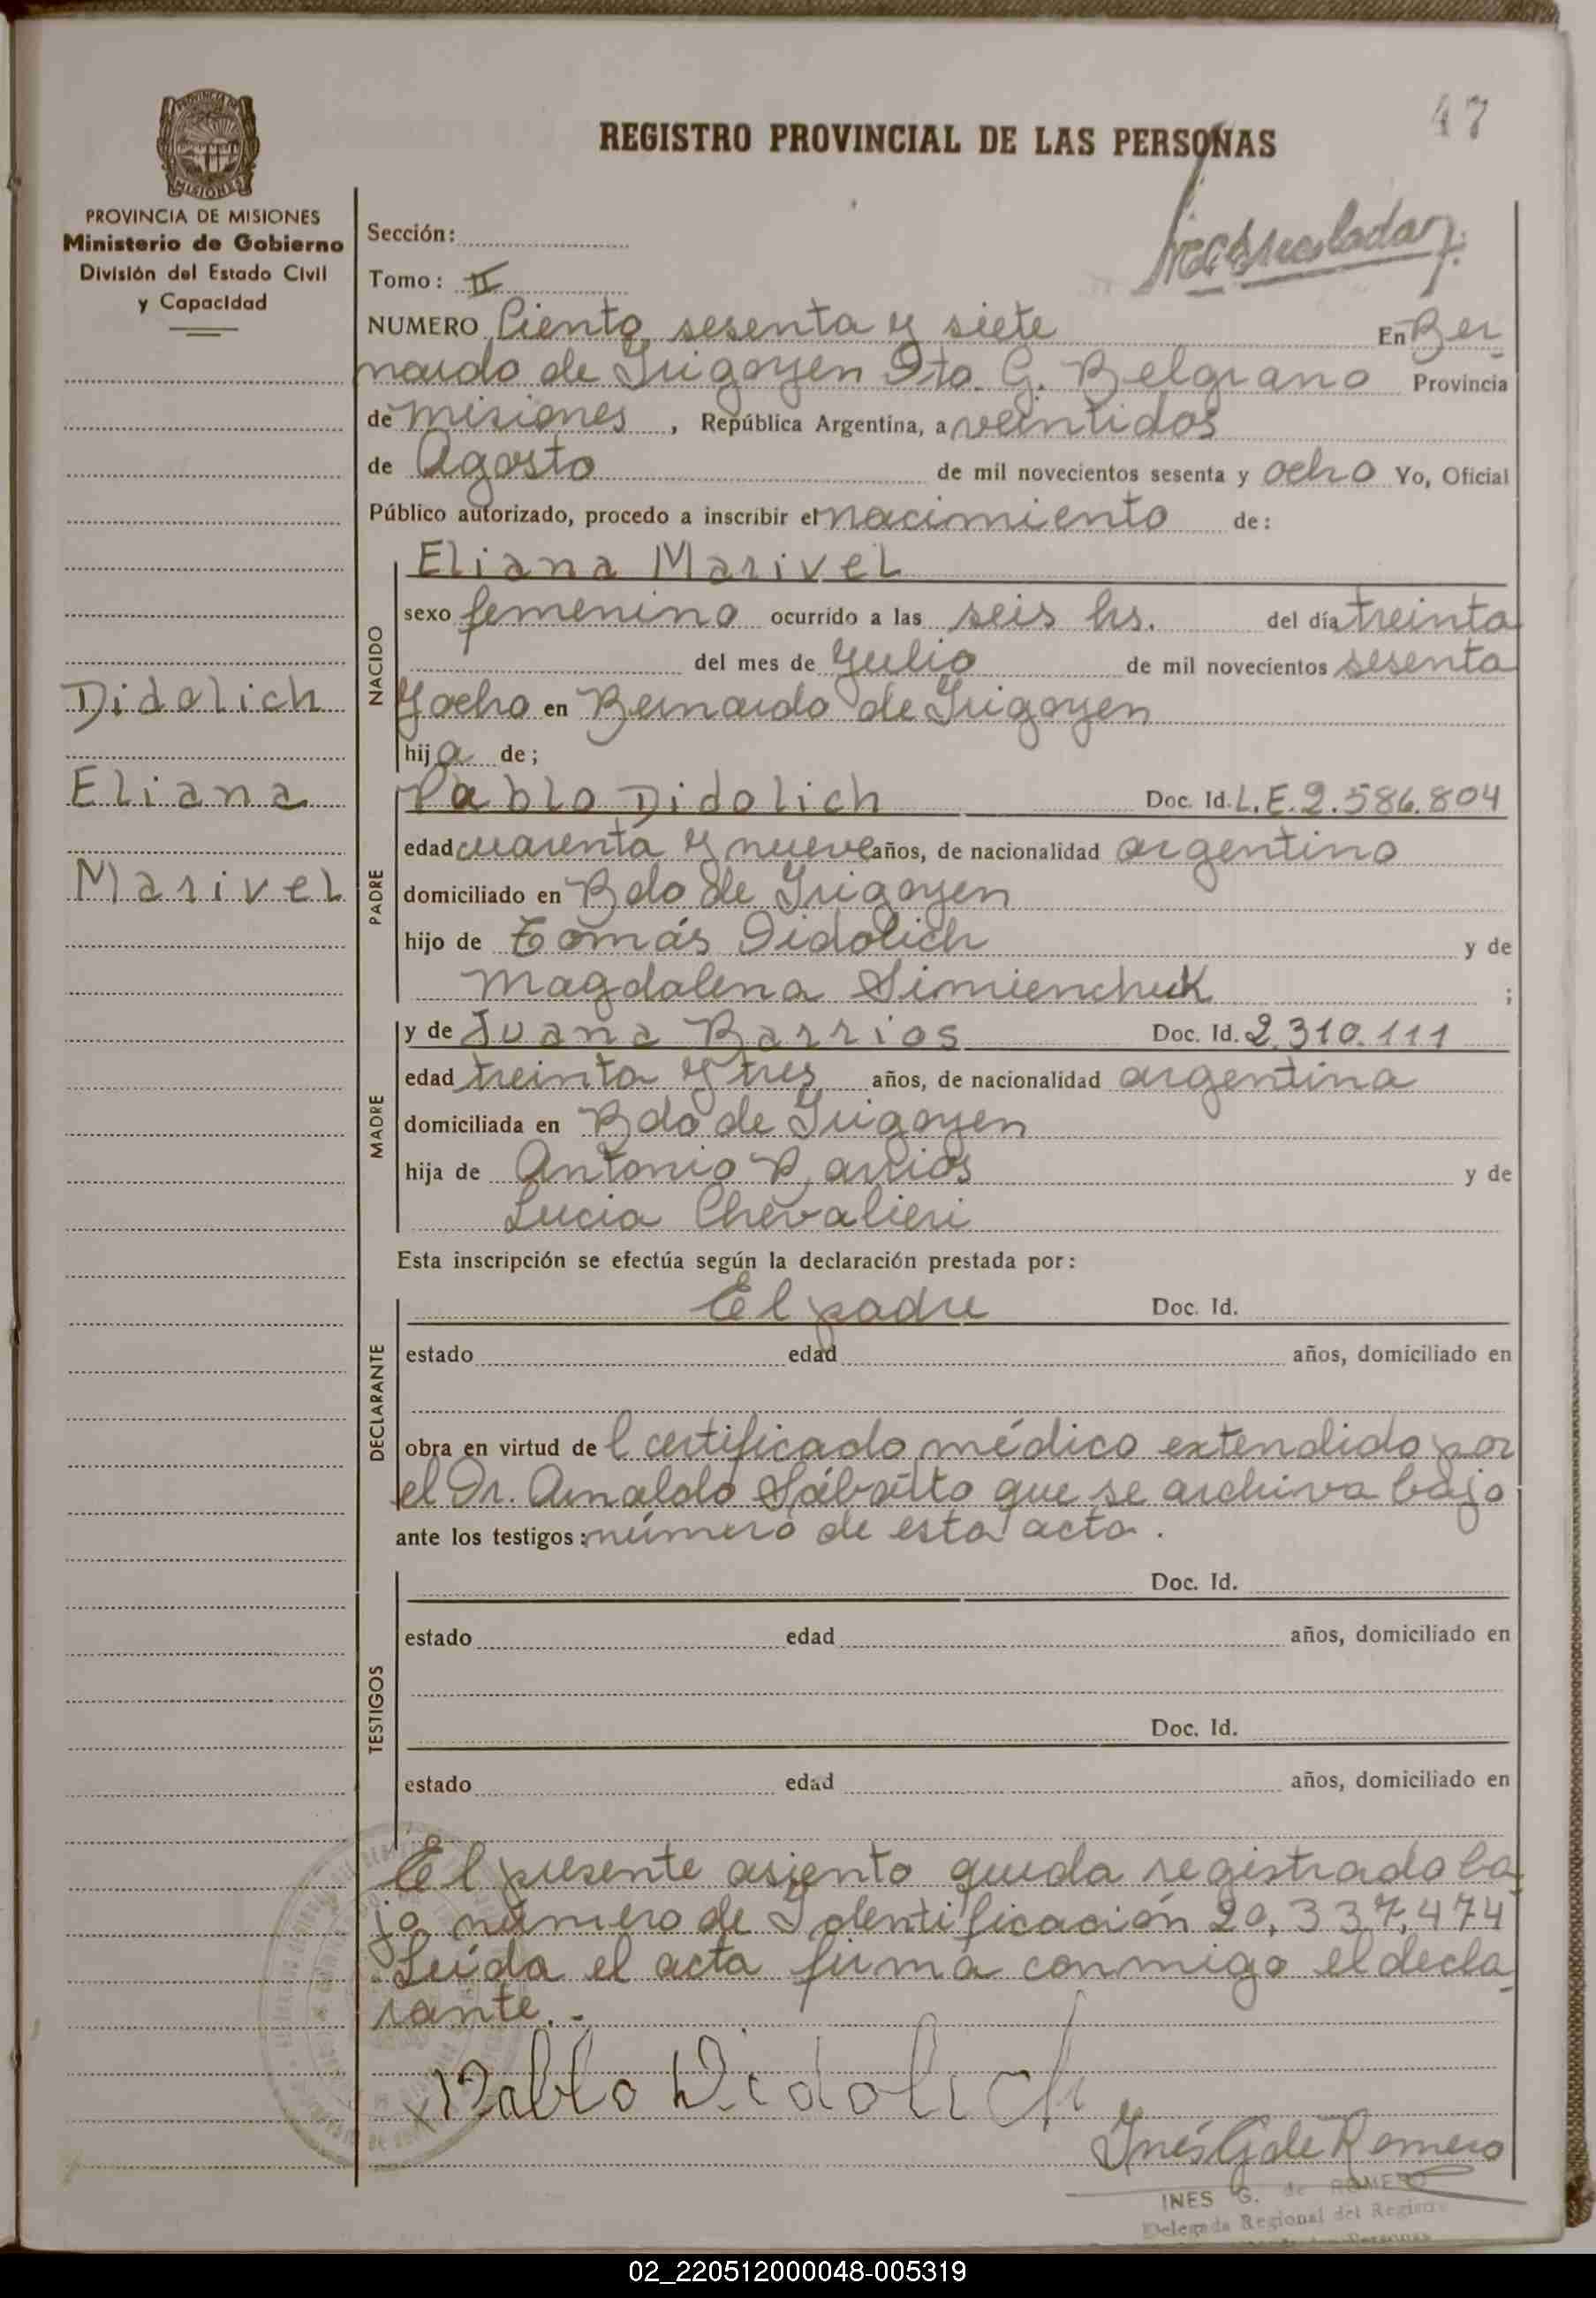 47
REGISTRO PROVINCIAL DE LAS PERSONAS
MISIONES
PROVINCIA DE MISIONES
Ministerio de Gobierno
División del Estado Civil
y Capacidad
Sección:
Tomo: II
NUMERO Ciento sesenta y siete En Ber-
nardo de Irigoyen Dto. G. Belgrano Provincia
de Misiones, República Argentina, a veintidos
de Agosto de mil novecientos sesenta y ocho Yo, Oficial
Público autorizado, procedo a inscribir el nacimiento de:
NACIDO
Eliana Marivel
sexo femenino ocurrido a las seis hs. del día treinta
del mes de Julio de mil novecientos sesenta
y ocho en Bernardo de Irigoyen
hija de;
Didolich
Eliana
Marivel
PADRE
Pablo Didolich Doc. Id. L.E. 2.586.804
edad cuarenta y nueve años, de nacionalidad argentino
domiciliado en Bdo de Irigoyen
hijo de Tomás Didolich y de
Magdalena Simienchuk ;
MADRE
y de Juana Barrios Doc. Id. 2.310.111
edad treinta y tres años, de nacionalidad argentina
domiciliada en Bdo de Irigoyen
hija de Antonio Barrios y de
Lucia Chevalieri
Esta inscripción se efectúa según la declaración prestada por:
DECLARANTE
El padre Doc. Id.
estado edad años, domiciliado en
obra en virtud de l certificado médico extendido por
el Dr. Arnaldo Sábatto que se archiva bajo
ante los testigos: número de esta acta.
TESTIGOS
Doc. Id.
estado edad años, domiciliado en
Doc. Id.
estado edad años, domiciliado en
El presente asiento queda registrado ba-
jo número de Identificación 20,337,474
Leída el acta firma conmigo el decla-
rante.-
Pablo Didolich
Inés G de Romero
INES G. de ROMERO
Delegada Regional del Registro
Personas
02_220512000048-005319